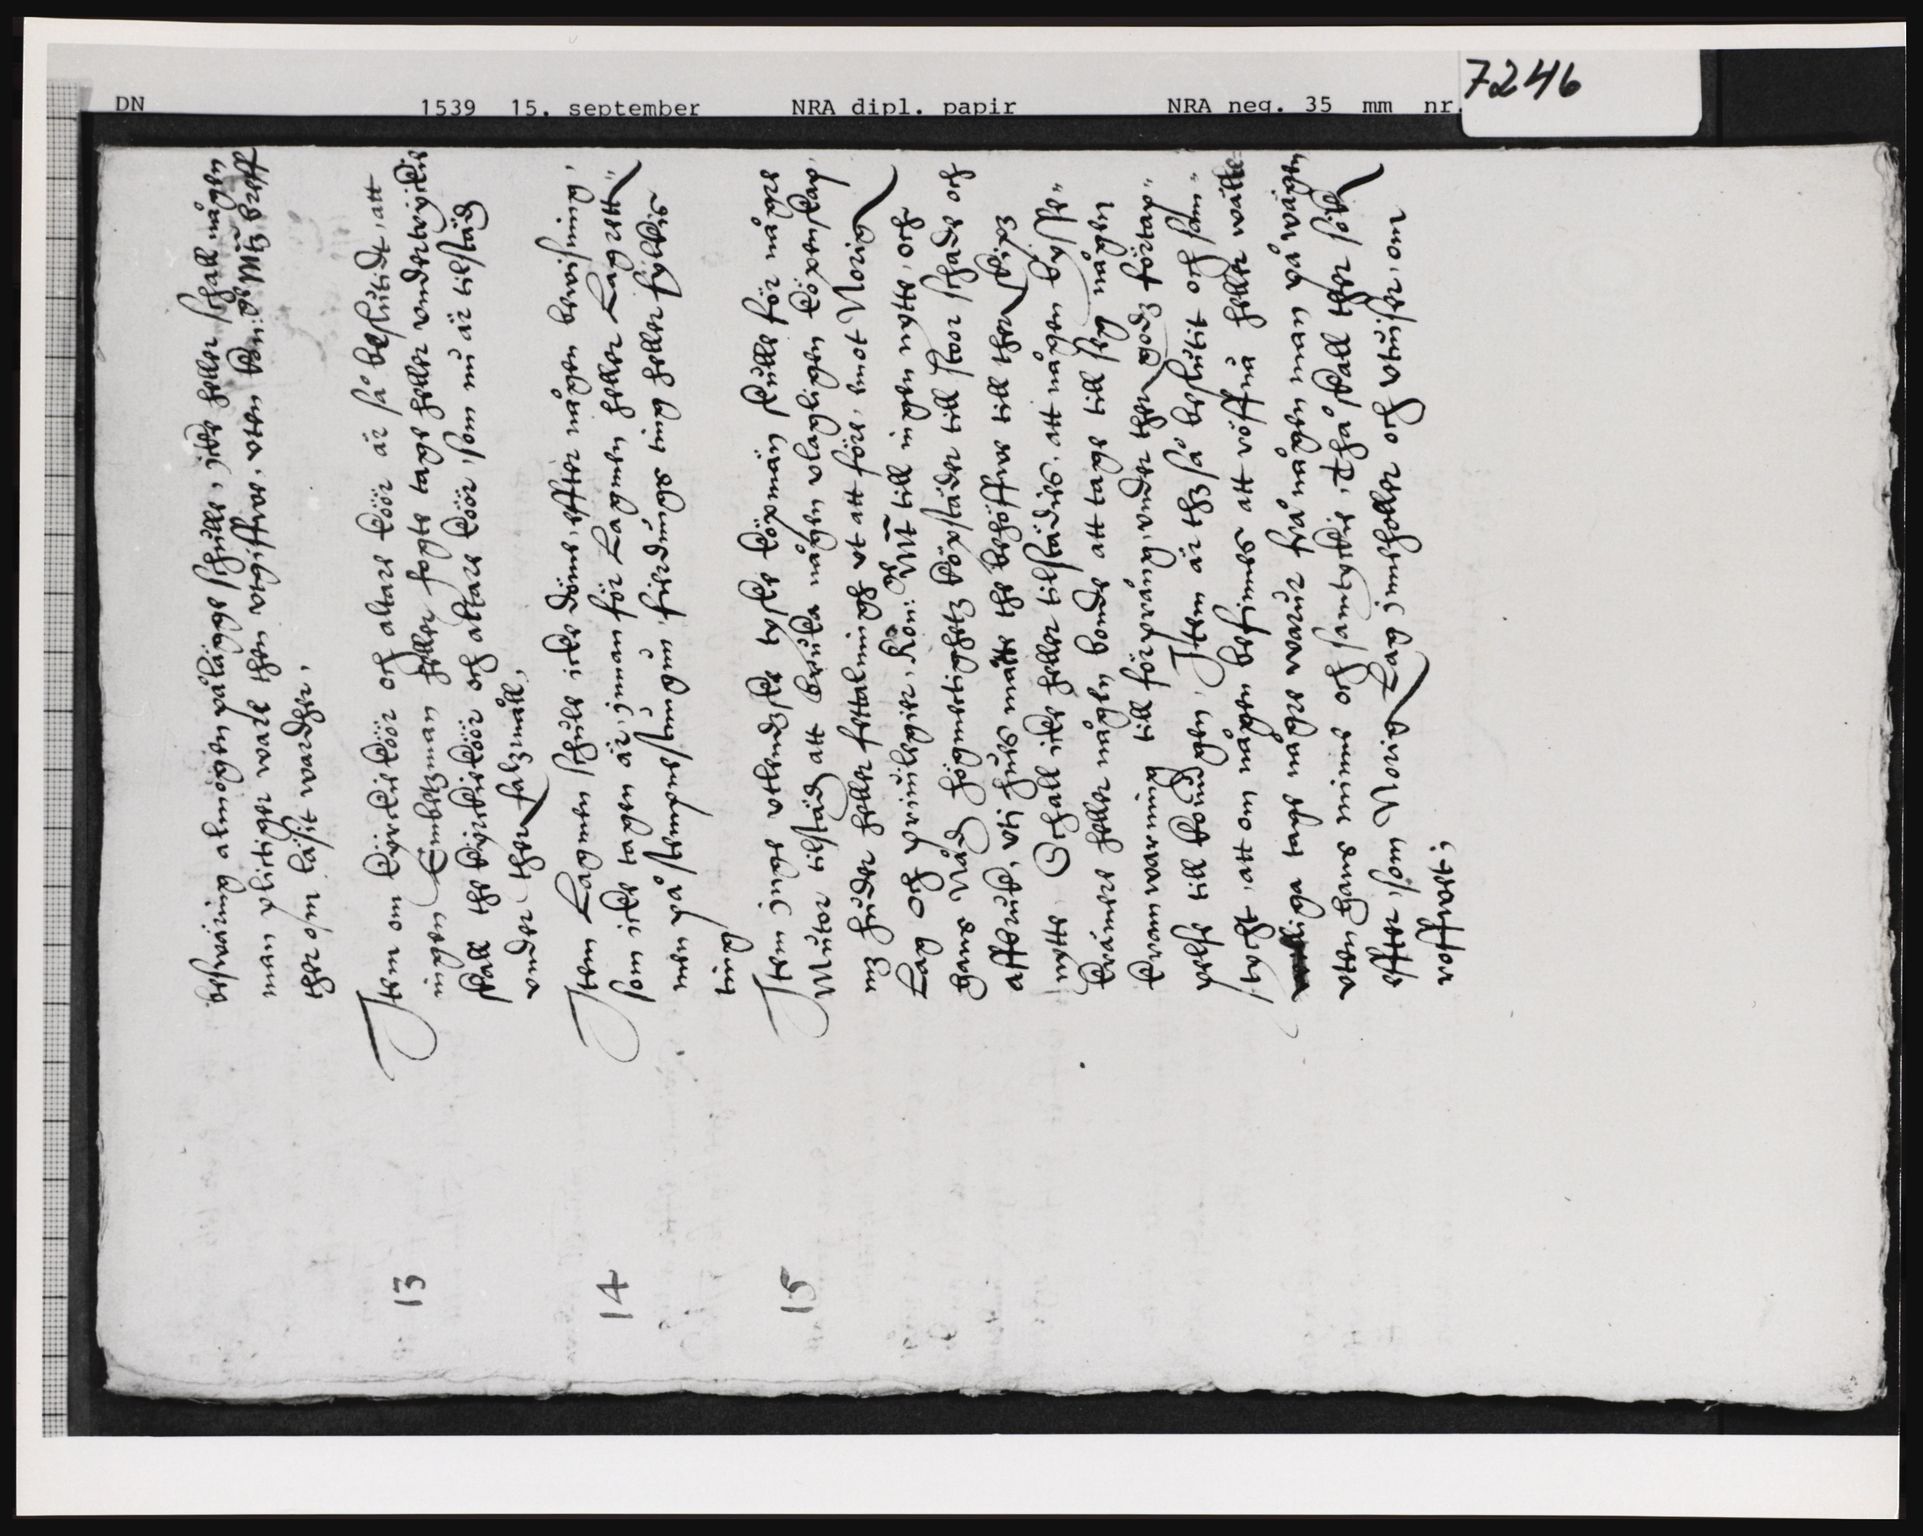 DN 1539 15. september NRA dipl. papir NRA neg. 35 mm nr. 7246
beswäring almogen pålägge schulle, icke heller schall någen
man plictiger ware then vtgiffwe, vten Kon: ge Mtz breff
ther om läsit wardher,
13
Item om kyrkieköör och altare köör är så beslutidt, att
ingen Embetzman heller fogte tage heller vndertryckie
skall the kyrkieköör och altare köör, som nu är tilstäd
vnder ther salzmåll,
14
Item Lagmen schule icke döme, effter någen bewisning,
som icke tagen är, innan för Lagmen heller Lagrett
men på stempnestungun fierdungs ting heller fylkis
ting
15
Item inge vtlendzske tyske köpmän skulle för någre
Mutor tilstäd att bruka någen olagligen köpenskap,
mz huder heller fettalninge vt att före, emot Norig
Lag och priuilegier, Kon: ge Mtt till ingen nytte, och
hans Nåd högmectighetz köpstäder till stoor schade och
affbruck, vti huus matte the behöffwe till ther skipz
nytte Schall icke heller tilstädies, att någen bysse
krämere heller någen bonde att tage till seg någen
kramwarning till förprång, vnder then godz förtap
pelse till Konungen, Item är thz så beslutit och sam
tyckt, att om någen befinnes att röffua heller wålle
liga tage någre warur frå någen man på wägen
vten hans minne och samtyckie, Thå skall ther sökt
effter, som Norig Lag inneholler och vtuiser, om
roffwett;